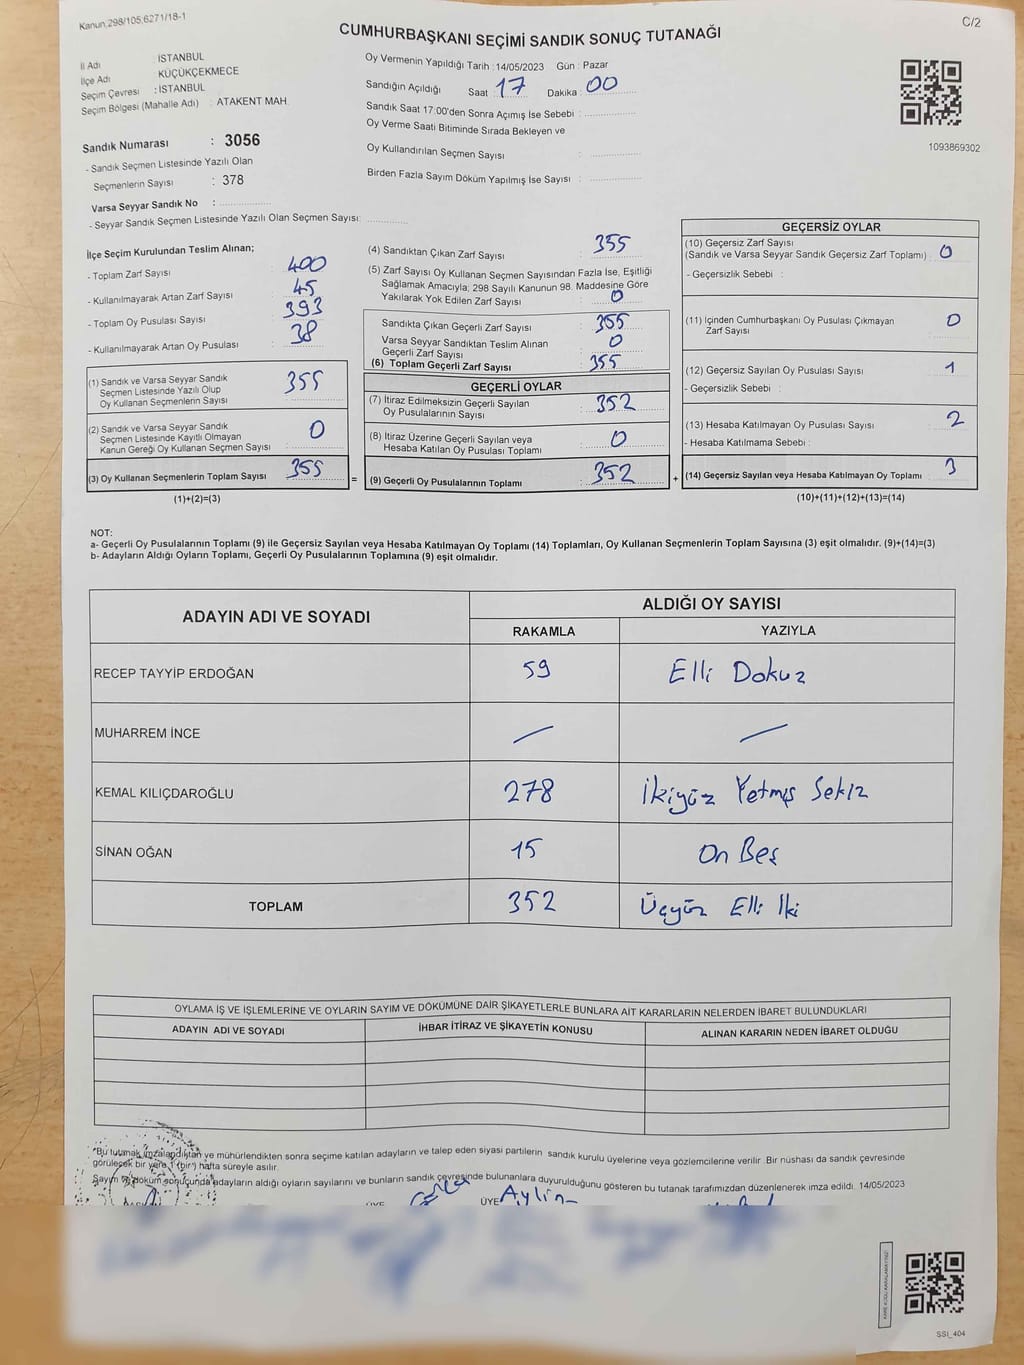 Kanun,298/105,6271/18-1
C/2
CUMHURBAŞKANI SEÇİMİ SANDIK SONUÇ TUTANAĞI
İl Adı : İSTANBUL
İlçe Adı KÜÇÜKÇEKMECE
Seçim Çevresi : İSTANBUL
Seçim Bölgesi (Mahalle Adı) : ATAKENT MAH.
Sandık Numarası : 3056
- Sandık Seçmen Listesinde Yazılı Olan
Seçmenlerin Sayısı : 378
Varsa Seyyar Sandık No :
- Seyyar Sandık Seçmen Listesinde Yazılı Olan Seçmen Sayısı:
Oy Vermenin Yapıldığı Tarih : 14/05/2023 Gün : Pazar
Sandığın Açıldığı Saat : 17 Dakika : 00
Sandık Saat 17:00'den Sonra Açımış İse Sebebi :
Oy Verme Saati Bitiminde Sırada Bekleyen ve
Oy Kullandırılan Seçmen Sayısı :
Birden Fazla Sayım Döküm Yapılmış İse Sayısı :
1093869302
İlçe Seçim Kurulundan Teslim Alınan;
- Toplam Zarf Sayısı : 400
- Kullanılmayarak Artan Zarf Sayısı : 45
- Toplam Oy Pusulası Sayısı : 393
- Kullanılmayarak Artan Oy Pusulası : 38
(1) Sandık ve Varsa Seyyar Sandık
Seçmen Listesinde Yazılı Olup
Oy Kullanan Seçmenlerin Sayısı : 355
(2) Sandık ve Varsa Seyyar Sandık
Seçmen Listesinde Kayıtlı Olmayan
Kanun Gereği Oy Kullanan Seçmen Sayısı : 0
(3) Oy Kullanan Seçmenlerin Toplam Sayısı : 355
(1)+(2)=(3)
=
(4) Sandıktan Çıkan Zarf Sayısı : 355
(5) Zarf Sayısı Oy Kullanan Seçmen Sayısından Fazla İse, Eşitliği
Sağlamak Amacıyla; 298 Sayılı Kanunun 98. Maddesine Göre
Yakılarak Yok Edilen Zarf Sayısı : 0
Sandıkta Çıkan Geçerli Zarf Sayısı : 355
Varsa Seyyar Sandıktan Teslim Alınan
Geçerli Zarf Sayısı : 0
(6) Toplam Geçerli Zarf Sayısı : 355
GEÇERLİ OYLAR
(7) İtiraz Edilmeksizin Geçerli Sayılan
Oy Pusulalarının Sayısı : 352
(8) İtiraz Üzerine Geçerli Sayılan veya
Hesaba Katılan Oy Pusulası Toplamı : 0
(9) Geçerli Oy Pusulalarının Toplamı : 352
+
GEÇERSİZ OYLAR
(10) Geçersiz Zarf Sayısı
(Sandık ve Varsa Seyyar Sandık Geçersiz Zarf Toplamı) : 0
- Geçersizlik Sebebi :
(11) İçinden Cumhurbaşkanı Oy Pusulası Çıkmayan
Zarf Sayısı : 0
(12) Geçersiz Sayılan Oy Pusulası Sayısı : 1
- Geçersizlik Sebebi :
(13) Hesaba Katılmayan Oy Pusulası Sayısı : 2
- Hesaba Katılmama Sebebi :
(14) Geçersiz Sayılan veya Hesaba Katılmayan Oy Toplamı : 3
(10)+(11)+(12)+(13)=(14)
NOT:
a- Geçerli Oy Pusulalarının Toplamı (9) ile Geçersiz Sayılan veya Hesaba Katılmayan Oy Toplamı (14) Toplamları, Oy Kullanan Seçmenlerin Toplam Sayısına (3) eşit olmalıdır. (9)+(14)=(3)
b- Adayların Aldığı Oyların Toplamı, Geçerli Oy Pusulalarının Toplamına (9) eşit olmalıdır.
ADAYIN ADI VE SOYADI
ALDIĞI OY SAYISI
RAKAMLA YAZIYLA
RECEP TAYYİP ERDOĞAN 59 Elli Dokuz
MUHARREM İNCE — —
KEMAL KILIÇDAROĞLU 278 İkiyüz Yetmiş Sekiz
SİNAN OĞAN 15 On Beş
TOPLAM 352 Üçyüz Elli İki
OYLAMA İŞ VE İŞLEMLERİNE VE OYLARIN SAYIM VE DÖKÜMÜNE DAİR ŞİKAYETLERLE BUNLARA AİT KARARLARIN NELERDEN İBARET BULUNDUKLARI
ADAYIN ADI VE SOYADI İHBAR İTİRAZ VE ŞİKAYETİN KONUSU ALINAN KARARIN NEDEN İBARET OLDUĞU
*Bu tutanak imzalandıktan ve mühürlendikten sonra seçime katılan adayların ve talep eden siyasi partilerin sandık kurulu üyelerine veya gözlemcilerine verilir .Bir nüshası da sandık çevresinde
görülecek bir yere 1 (bir) hafta süreyle asılır.
Sayım ve döküm sonucunda adayların aldığı oyların sayılarını ve bunların sandık çevresinde bulunanlara duyurulduğunu gösteren bu tutanak tarafımızdan düzenlenerek imza edildi. 14/05/2023
ÜYE ÜYE Aylin
SSİ_404